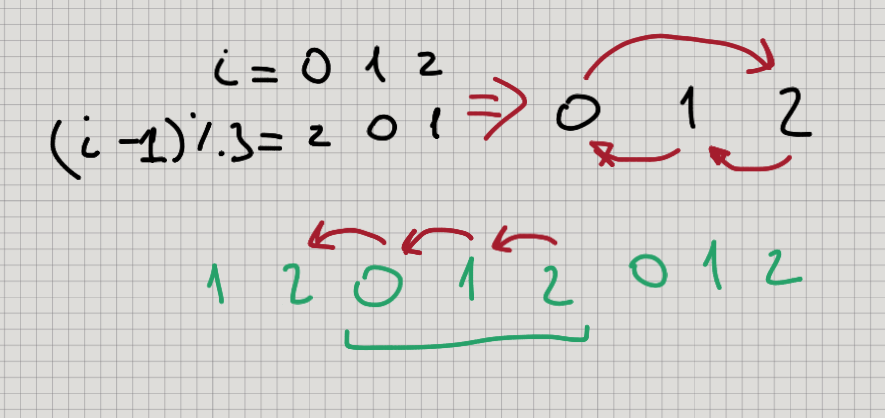 i = 0 1 2
(i - 1) % 3 = 2 0 1 ⇒ 0 1 2
1 2 0 1 2 0 1 2